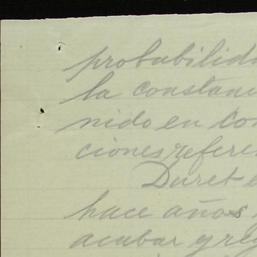 probabilida
la constanc
nido en con
ciones refere
Duret e
hace años
acabar y reg